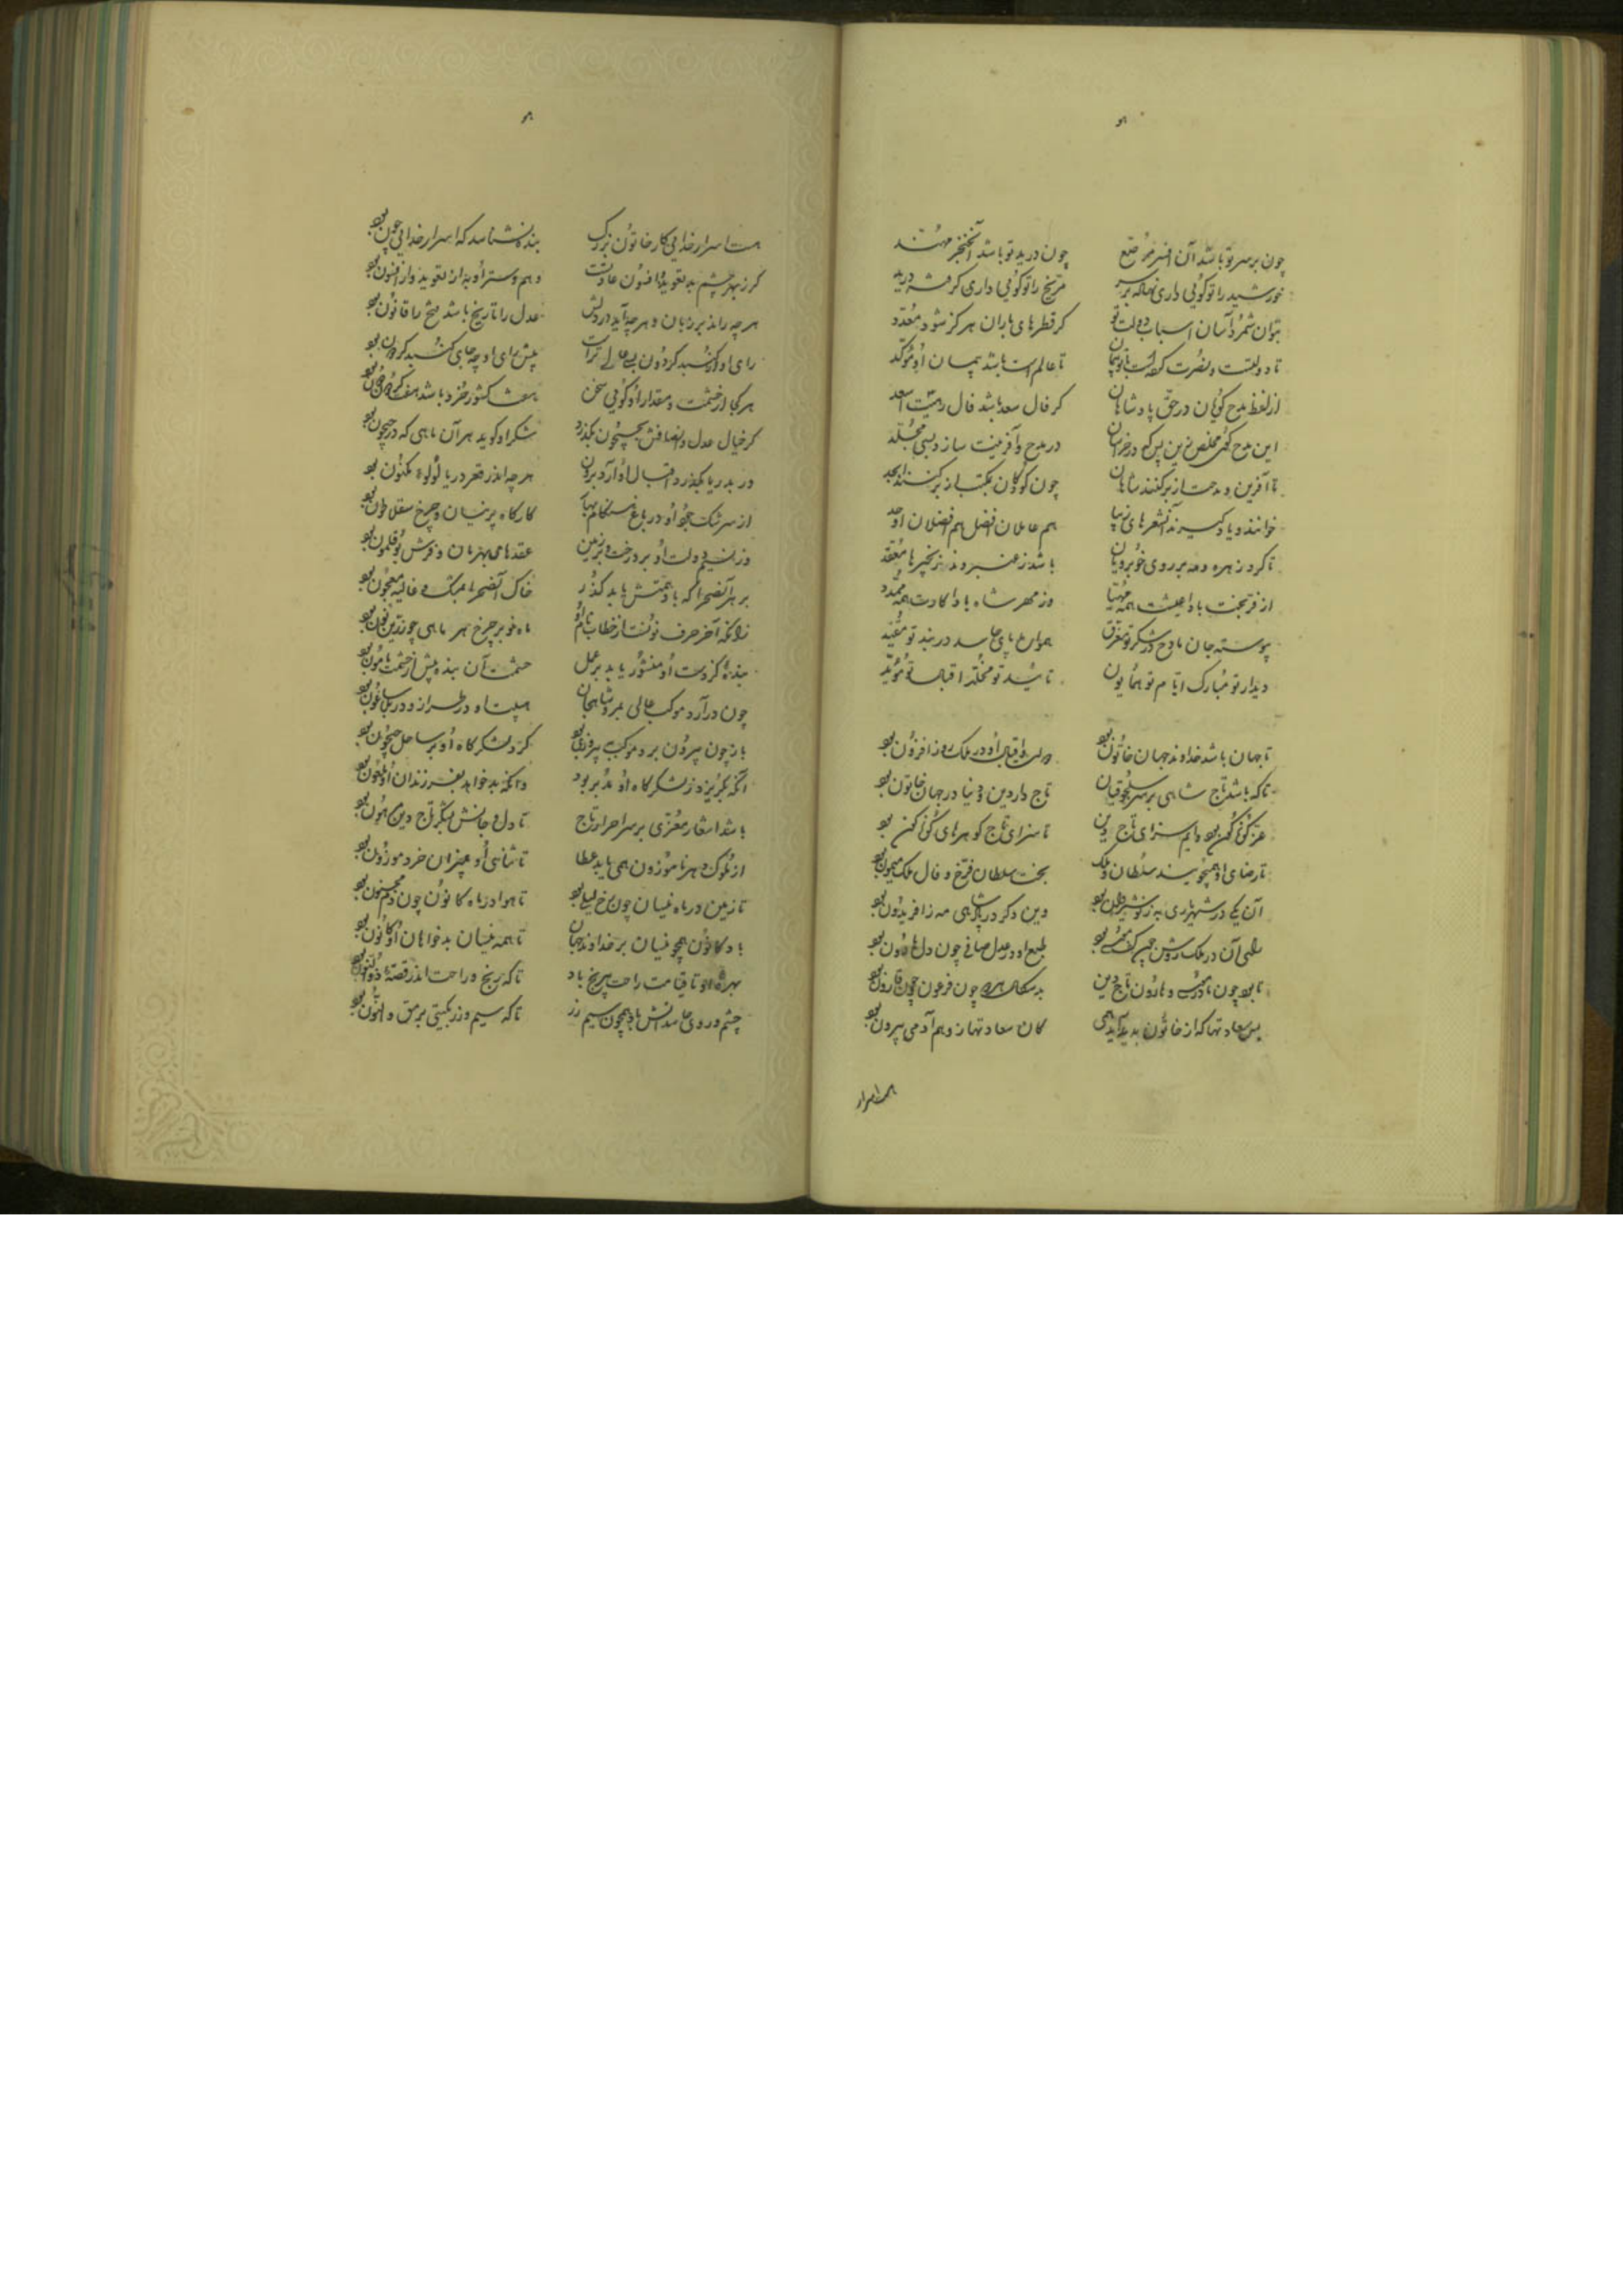 چون بر سر تو باشد آن افسر مرصع چون در ید تو باشد آن خنجر مهند
خورشید را تو گویی داری نهاده بر سر مریخ را تو گویی داری گرفته در ید
بتوان شمرد آسان اسباب دولت تو گر قطرهای باران هرگز شود معدد
تا دولتست و نصرت تا عالمست باشد پیمان او موکد
از لفظ مدح گویان در حق پادشاهان گر فال سعد باشد فال رهیت اسعد
این مدح گوی مخلص زین پس که در خراسان در مدح و آفرینت سازد بسی مجلد
تا آفرین و مدحت از بر کنند شاهان چون کودکان بمکتب از بر کنند ابجد
خوانند و یاد گیرند آن شعرهای زیبا هم عاملان افضل هم فاضلان اوحد
تا گرد زهره و مه بر روی خوبرویان باشد ز عنبر و ند زنجیرها معقد
از فر بختت بادا عیشت همه مهیا وز مهر شاه بادا کارت همه ممهد
پیوسته جان مادح در شکر تو مغرق همواره پای حاسد در بند تو مقید
دیدار تو مبارک ایام تو همایون تأیید تو مخلد اقبال تو مؤید
تا جهان باشد خداوند جهان خاتون بود دولت و اقبال او در ملک روز افزون بود
تا که باشد تاج شاهی بر سر سلجوقیان تاج دار دین و دنیا در جهان خاتون بود
عز گوناگون بود دایم سزای تاج دین تا سزای تاج گوهرهای گوناگون بود
تا رضای او همی جویند سلطان و ملک بخت سلطان فرخ و فال ملک میمون بود
آن یکی در شهریاری به ز نوشیروان بود وین دگر در پادشاهی مه ز افریدون بود
طبع او در عدل صافی چون دل هارون بود
تا بود چون و هارون تاج دین بدسگال چون فرعون چون قارون بود
بس سعادتها که از خاتون پدید آید همی کان سعادتها ز وهم آدمی بیرون بود
هست اسرار
هست اسرار خدایی کار خاتون بزرگ بنده نشناسد که اسرار خدایی چون بود
گر ز بهر چشم بد تعویذ و افسون عادتست وهم و ستر او به از تعویذ و از افسون بود
هر چه راند بر زبان و هر چه آید در دلش عدل را تاریخ باشد ملح را قانون بود
رای او را گنبد گردون بسی عالی تر است پیش رای او چه جای گنبد گردون بود
هر کجا از حشمت و مقدار او گویی سخن هفت کشور خرد باشد هفت گردون دون بود
گر خیال عدل و انصافش بجیحون بگذرد شکر او گوید هر آن ماهی که در جیحون بود
ور بدریا بگذرد اقبال او آرد برون هر چه اندر قعر دریا لؤلؤ مکنون بود
از سرشک جود او در باغ هنگام بهار کارگاه پرنیان و چرخ سقلاطون بود
وز نسیم دولت او بر درخت و بر زمین عقدهای بهرمان و فرش بوقلمون بود
بر هر آن صحرا که باد همتش یابد گذر خاک آن صحرا بمشک و غالیه معجون بود
زانکه آخر حرف نونست از خطاب نام او ماه نو بر چرخ هر ماهی چو زرین نون بود
بنده کز دست او منشور یابد بر عمل حشمت آن بنده بیش از حشمت مأمون بود
چون در آرد موکب عالی بمرو شاهجان هیبت او در طراز و در بلاساغون بود
باز چون بیرون برد موکب بپیروزی گرد لشکرگاه او بر ساحل جیحون بود
آنکه بگریزد ز لشکرگاه او مدبر بود وانکه بد خواهد بفرزندان او ملعون بود
باشد اشعار معزی بر سر احرار تاج تا دل و جانش بشکر تاج دین مرهون بود
از ملوک دهر ناموزون همی یابد عطا تا ثنای او بمیزان خرد موزون بود
تا زمین در ماه نیسان چون رخ لیلی بود تا هوا در ماه کانون چون دم مجنون بود
باد کانون همچو نیسان بر خداوند جهان تا همه نیسان بدخواهان او کانون بود
بهره او تا قیامت راحت بی رنج باد تا که رنج و راحت اندر قصه ذوالنون بود
چشم و روی حاسدانش باد همچون سیم و زر تا که سیم و زر بگیتی